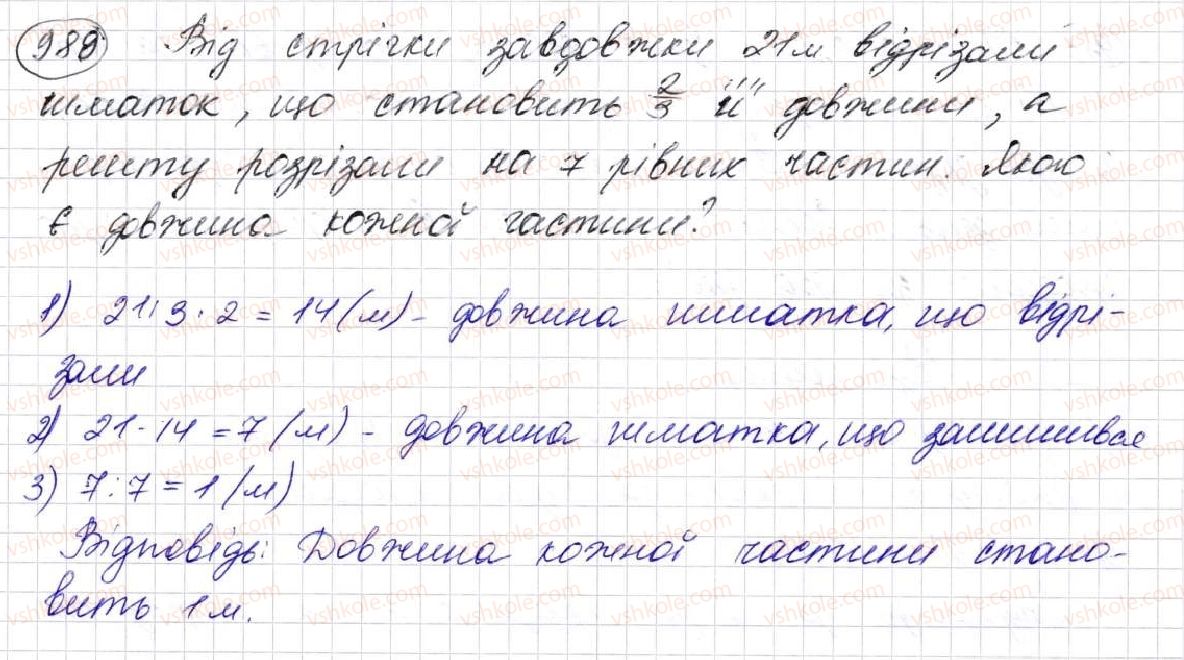 988 Від стрічки завдовжки 21 м відрізали
шматок, що становить 2/3 її довжини, а
решту розрізали на 7 рівних частин. Якою
є довжина кожної частини?
1) 21 : 3 · 2 = 14 (м) - довжина шматка, що відрі-
зали
2) 21 - 14 = 7 (м) - довжина шматка, що залишився
3) 7 : 7 = 1 (м)
Відповідь: Довжина кожної частини стано-
вить 1 м.